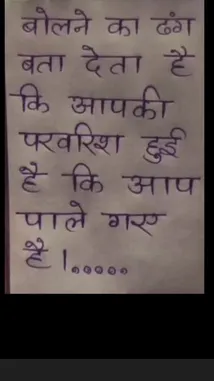 बोलने का ढंग
बता देता है
कि आपकी
परवरिश हुई
है कि आप
पाले गए
है।.....